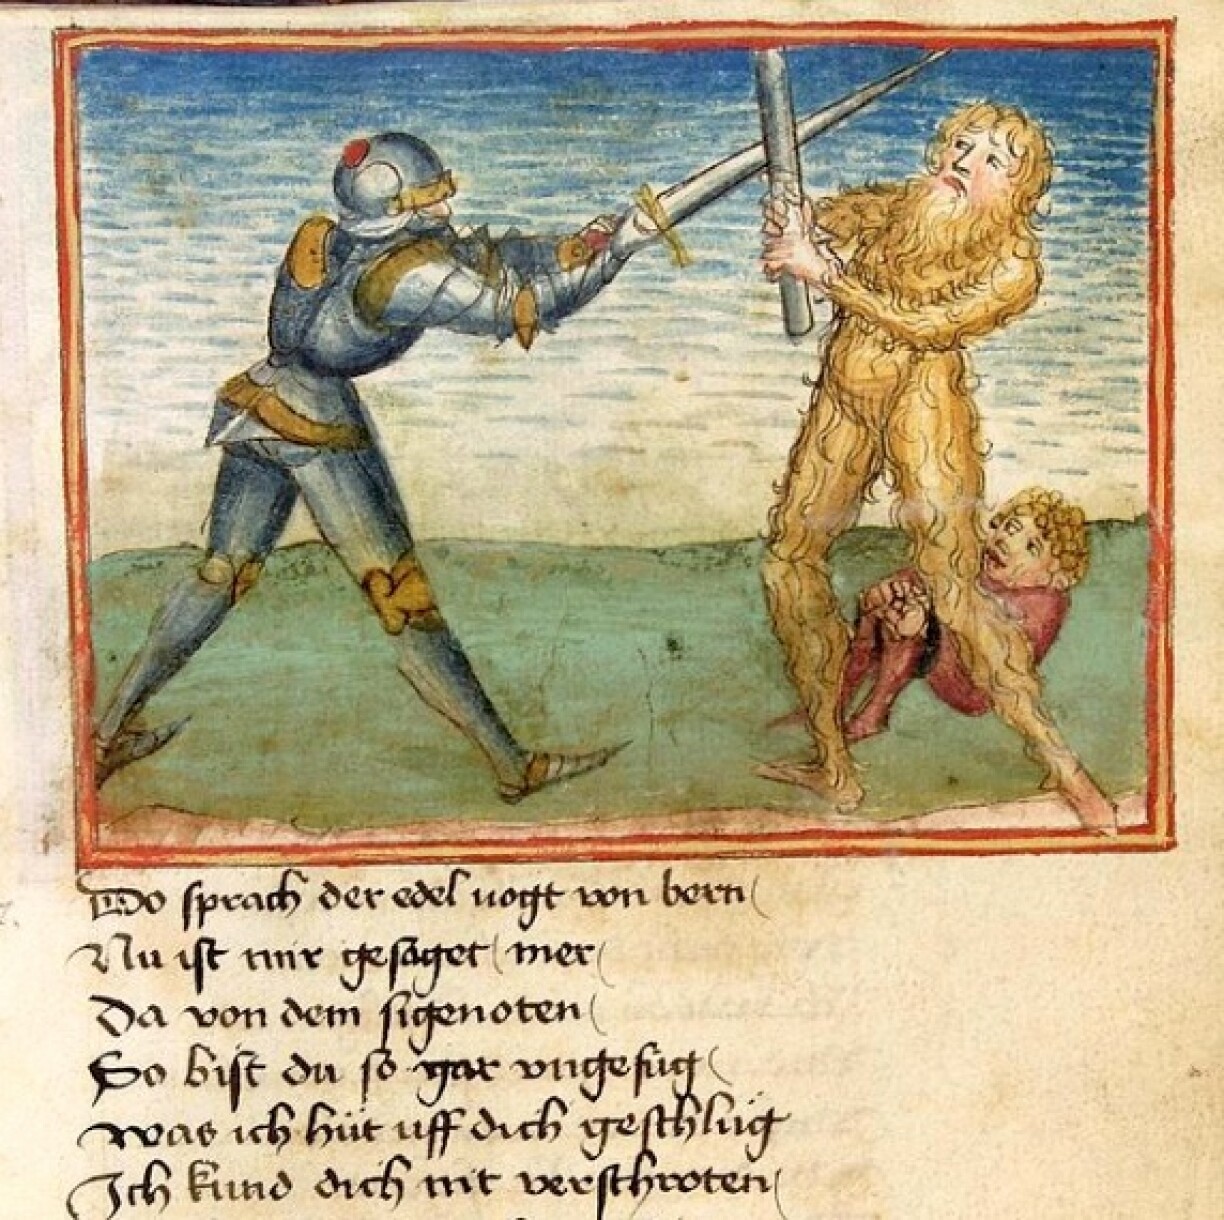 Do sprach der edel uogt von bern
Nu ist mir gesaget mer
Da von dem sigenoten
So bist du so gar vngefüg
Was ich hüt uff dich geschlüg
Ich kund dich nit verschroten